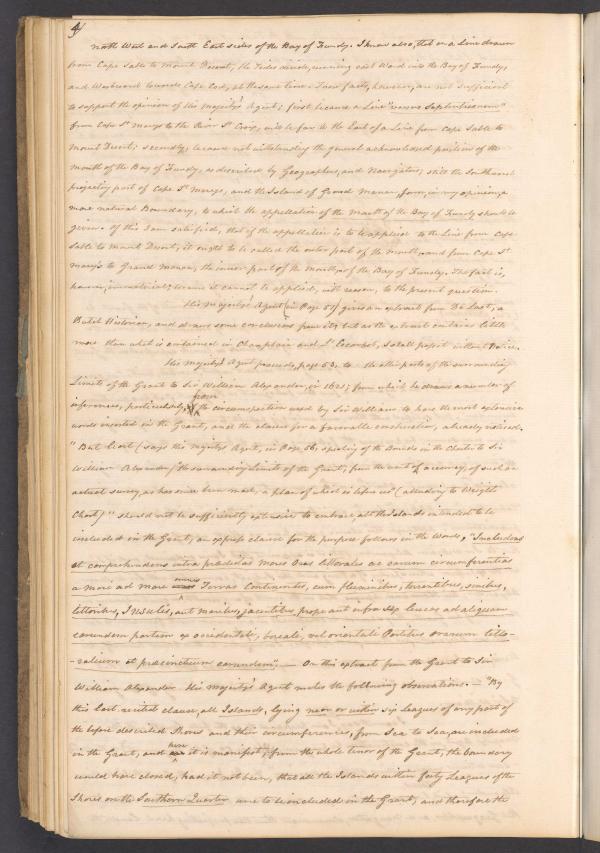 4/
North West and South East sides of the Bay of Fundy. I know also, that on a Line drawn
from Cape Sable to Mount Desert, the Tides divide, running east Ward into the Bay of Fundy,
and Westward towards Cape Cod, at the same time. These facts, however, are not sufficient
to support the opinion of His Majesty's Agent; first because a Line "versus Septentrionem"
from Cape St. Marys to the River St. Croix, will be far to the East of a Line from Cape Sable to
Mount Desert; secondly, because notwithstanding the general acknowledged position of the
mouth of the Bay of Fundy, as described by Geographers, and Navigators, still the Southwest
projecting part of Cape St. Marys, and the Island of Grand Manan, form, in my opinion, a
more natural Boundary, to which the appellation of the Mouth of the Bay of Fundy should be
given. Of this I am satisfied, that if the appellation is to be applied to the Line from Cape
Sable to Mount Desert, it ought to be called the outer part of the mouth, and from Cape St.
Marys to Grand Manan, the inner part of the mouth, of the Bay of Fundy. The fact is,
however, immaterial; because it cannot be applied, with reason, to the present question.
His Majesty's Agent (in Page 51) gives an extract from De Laet, a
Dutch Historian, and draws some conclusions from it; but as the extract contains little
more than what is contained in Champlain and L'Escarbot, I shall pass it without Notice.
His Majesty's Agent proceeds, page 53, to the other parts of the surrounding
Limits of the Grant to Sir William Alexander, in 1621; from which he draws a number of
inferences, particularly, from the circumspection used by Sir William to have the most expressive
words inserted in the Grant, and the clause for a favorable construction, already noticed.
"But least (says His Majesty's Agent, in Page 56, speaking of the Bounds in the Charter to Sir
William Alexander) the surrounding limits of the Grant, from the want of accuracy, of such an
actual survey, as has since been made, a plan of which is before us" (alluding to Wrights
Chart) "should not be sufficiently extensive to embrace all the Islands intended to be
included in the Grant, an express clause for the purpose follows in the words, "Includendas
et comprehendens intra praedictas Maris Oras littorales ac earum circumferentias
a mari ad mare omnes Terras Continentes, cum fluminibus, torrentibus, sinibus,
littoribus, Insulis, aut maribus, jacentibus, prope aut infra sex leucas ad aliquam
earundem partem ex occidentali, boreali, vel orientali Partibus orarum litto-
-ralium et praecinctuum earundem". — On this extract from the Grant to Sir
William Alexander His Majesty's Agent makes the following observations. — "By
this last recited clause, all Islands, lying near or within six leagues of any part of
the before described Shores and their circumferences, from Sea to Sea, are included
in the Grant, and here it is manifest, from the whole tenor of the Grant, the boundary
would have closed, had it not been, that all the Islands within forty Leagues of the
Shores on the Southern Quarter were to be included in the Grant, and therefore the